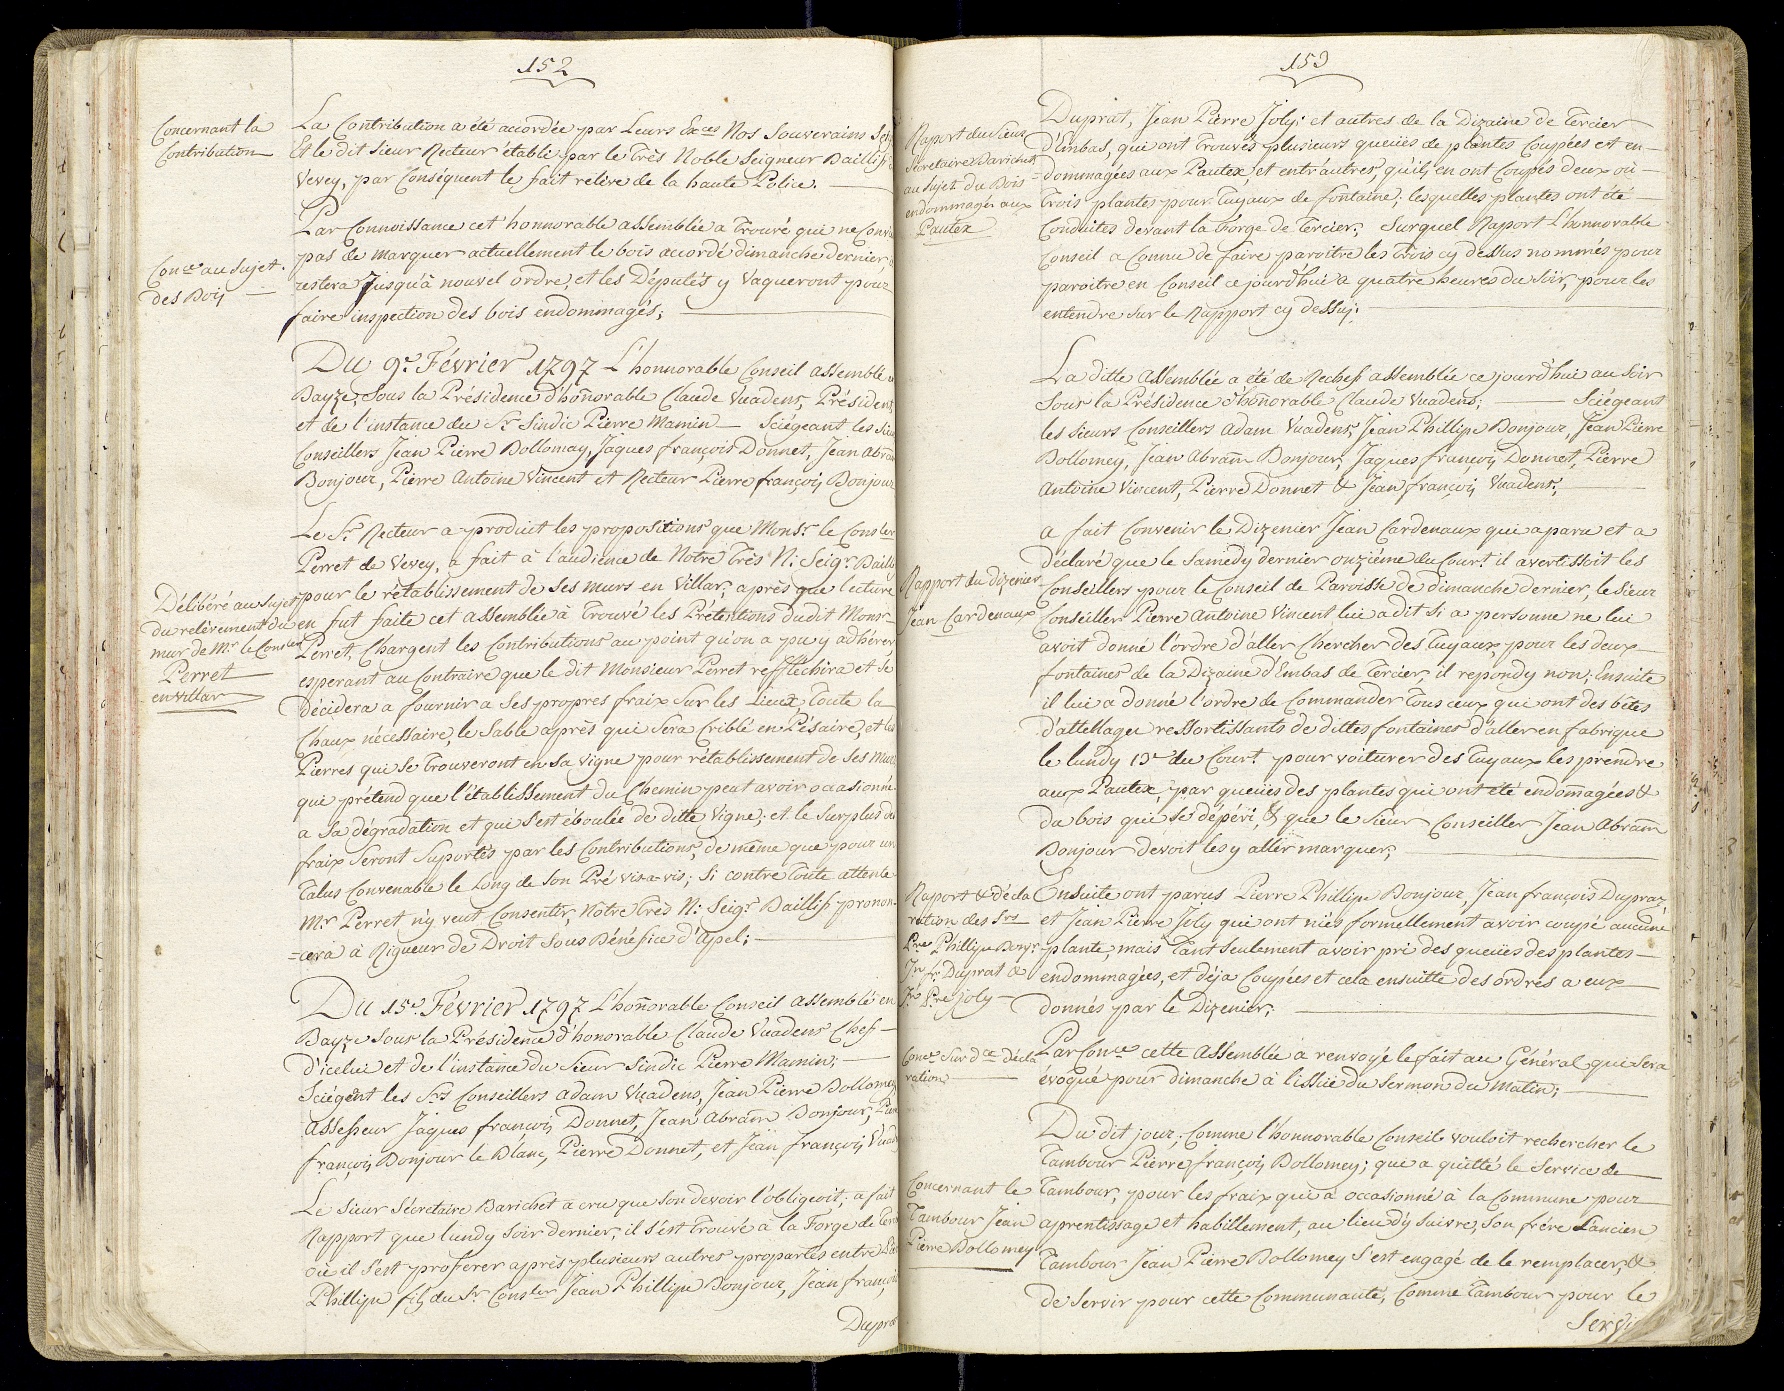 152
Concernant la
Contribution
La Contribution a été accordée par Leurs Exces Nos Souverains
Et le dit Sieur Recteur établi par le Très Noble Seigneur Baillif
Vevey, par Conséquent le fait relève de la haute Police.
Conce au Sujet
des Bois
Par Connoissance cet honnorable assemblée a trouvé qui ne
pas de marquer actuellement le bois accordé dimanche dernier,
restera jusqu'à nouvel ordre, et les Députés y Vaqueront pour
faire inspection des bois endommagés;
Du 9e. Février 1797 L'honnorable Conseil assemblé
Bayze, Sous la Présidence d'honnorable Claude Vuadens, Président,
et de l'instance du Sr. Sindic Pierre Mamin Sciégeant les
Conseillers Jean Pierre Dollomay, Jaques françois Donnet, Jean
Bonjour, Pierre Antoine Vincent et Recteur Pierre françois Bonjour
Délibéré au Sujet
du relèvement du
mur de Mr. le Consler
Perret
en Villar
Le Sr. Recteur a produit les propositions que Monsr. le Consler
Perret de Vevey, a fait à l'audience de Notre Très N: Seigr. Baillif
pour le rétablissement de Ses murs en Villar; après que lecture
en fut faite cet assemblée à trouvé les Prétentions dudit Monsr
Perret, Chargent les Contributions au point qu'on a pu y adhérer
esperant au Contraire que le dit Monsieur Perret reffléchira et Se
Décidera a fournir a Ses propres fraix Sur les Lieux Toute la
Chaux nécessaire, le Sable après qui Sera Criblé en Pésaire, et les
Pierres qui Se trouveront en Sa Vigne pour rétablissement de Ses Murs
qui prétend que l'établissement du Chemin peut avoir ocasionné
a Sa dégradation et qui S'est éboulée de ditte Vigne; et le Surplus des
fraix Seront Suportés par les Contributions, de même que pour un
Talus Convenable le Long de Son Pré vis-a-vis; Si contre Toute attente
Mr. Perret n'y veut Consentir, Notre Très N: Seigr. Baillif pronon-
=cera à Rigueur de Droit Sous Bénéfice d'Apel;
Du 15e. Février 1797 L'honnorable Conseil assemblé en
Bayze Sous la Présidence d'honorable Claude Vuadens Chef
D'icelui et de l'instance du Sieur Sindic Pierre Mamin;
Sciégent les Srs Conseillers Adam Vuadens, Jean Pierre Dollomey
Assesseur Jaques françois Donnet, Jean Abram Bonjour,
françois Bonjour le Blanc, Pierre Donnet, et Jean françois
Le Sieur Sécretaire Barichet a cru que Son devoir l'obligeoit; a fait
Rapport que lundy Soir dernier, il S'est trouvé à la Forge de
où il S'est proférer après plusieurs autres propartés entre
Phillipe fils du Sr. Consler Jean Phillipe Bonjour, Jean françois
153
Rapport du Sieur
Sécretaire Barichet
au Sujet du Bois
endommagés aux
Pautex
Duprat, Jean Pierre Joly; et autres de la Dizaine de Tercier
d'Embas, qui ont trouvés plusieurs queuës de plantes Coupées et en-
=dommagées aux Pautex, et entr'autres, qu'ils en ont Coupés deux où
trois plantes pour tuyaux de fontaine, lesquelles plantes ont été
Conduites devant la Forge de Tercier; Surquel Raport L'honnorable
Conseil a Connu de faire paroître les trois cy dessus nommés pour
paroitre en Conseil cejourd'hui a quatre heures du Soir, pour les
entendre Sur le Rapport cy dessus;
La ditte Assemblée a été de Rechef assemblée ce jourd'hui au Soir
Sous la Présidence d'honnorable Claude Vuadens; Sciégeant
les Sieurs Conseillers Adam Vuadens, Jean Phillipe Bonjour, Jean Pierre
Dollomey, Jean Abram Bonjour, Jaques françois Donnet, Pierre
Antoine Vincent, Pierre Donnet & Jean françois Vuadens,
Rapport du Dizenier
Jean Cardenaux
a fait Convenir le Dizenier Jean Cardenaux qui a paru et a
déclaré que le Samedy dernier onzième du Court. il avertissoit les
Conseillers pour le Conseil de Paroisse de dimanche dernier, le Sieur
Conseiller Pierre Antoine Vincent lui a dit Si a personne ne lui
avoit donné l'ordre d'aller Chercher des tuyaux pour les deux
fontaines de la Dizaine d'Embas de Tercier, il repondy non; Ensuite
il lui a donné l'ordre de Commander tous ceux qui ont des bêtes
d'attellages ressortissants de dittes fontaines d'aller en fabrique
le lundy 13e du Court. pour voiturer des tuyaux les prendre
aux Pautex, par queuës des plantes qui ont été endommagées &
du bois qui Se dépéri, & que le Sieur Conseiller Jean Abram
Bonjour devoit les y aller marquer;
Raport & décla
ration des Srs
Pre Phillipe Bonjr
Jn fs Duprat &
Jn Pre Joly
Ensuite ont parus Pierre Phillipe Bonjour, Jean françois Dupraz,
et Jean Pierre Joly qui ont niés formellement avoir coupé aucune
plante, mais tant Seulement avoir pri des queuës des plantes
endommagées, et déja Coupées et cela ensuitte des ordres a eux
donnés par le Dizenier;
Conce Sur dte décla
ration
Par Conce cette Assemblée a renvoyé le fait au Général qui Sera
évoqué pour dimanche à l'issuë du Sermon du matin;
Concernant le
Tambour Jean
Pierre Dollomey
Du dit jour; Comme l'honnorable Conseil vouloit rechercher le
Tambour Pierre françois Dollomey; qui a quitté le Service de
Tambour, pour les fraix qui a occasionné à la Commune pour
aprentissage et habillement, au lieu d'y Suivre, Son frére L'ancien
Tambour Jean Pierre Dollomey S'est engagé de le remplacer, &
de Servir pour cette Communauté, Comme Tambour pour le